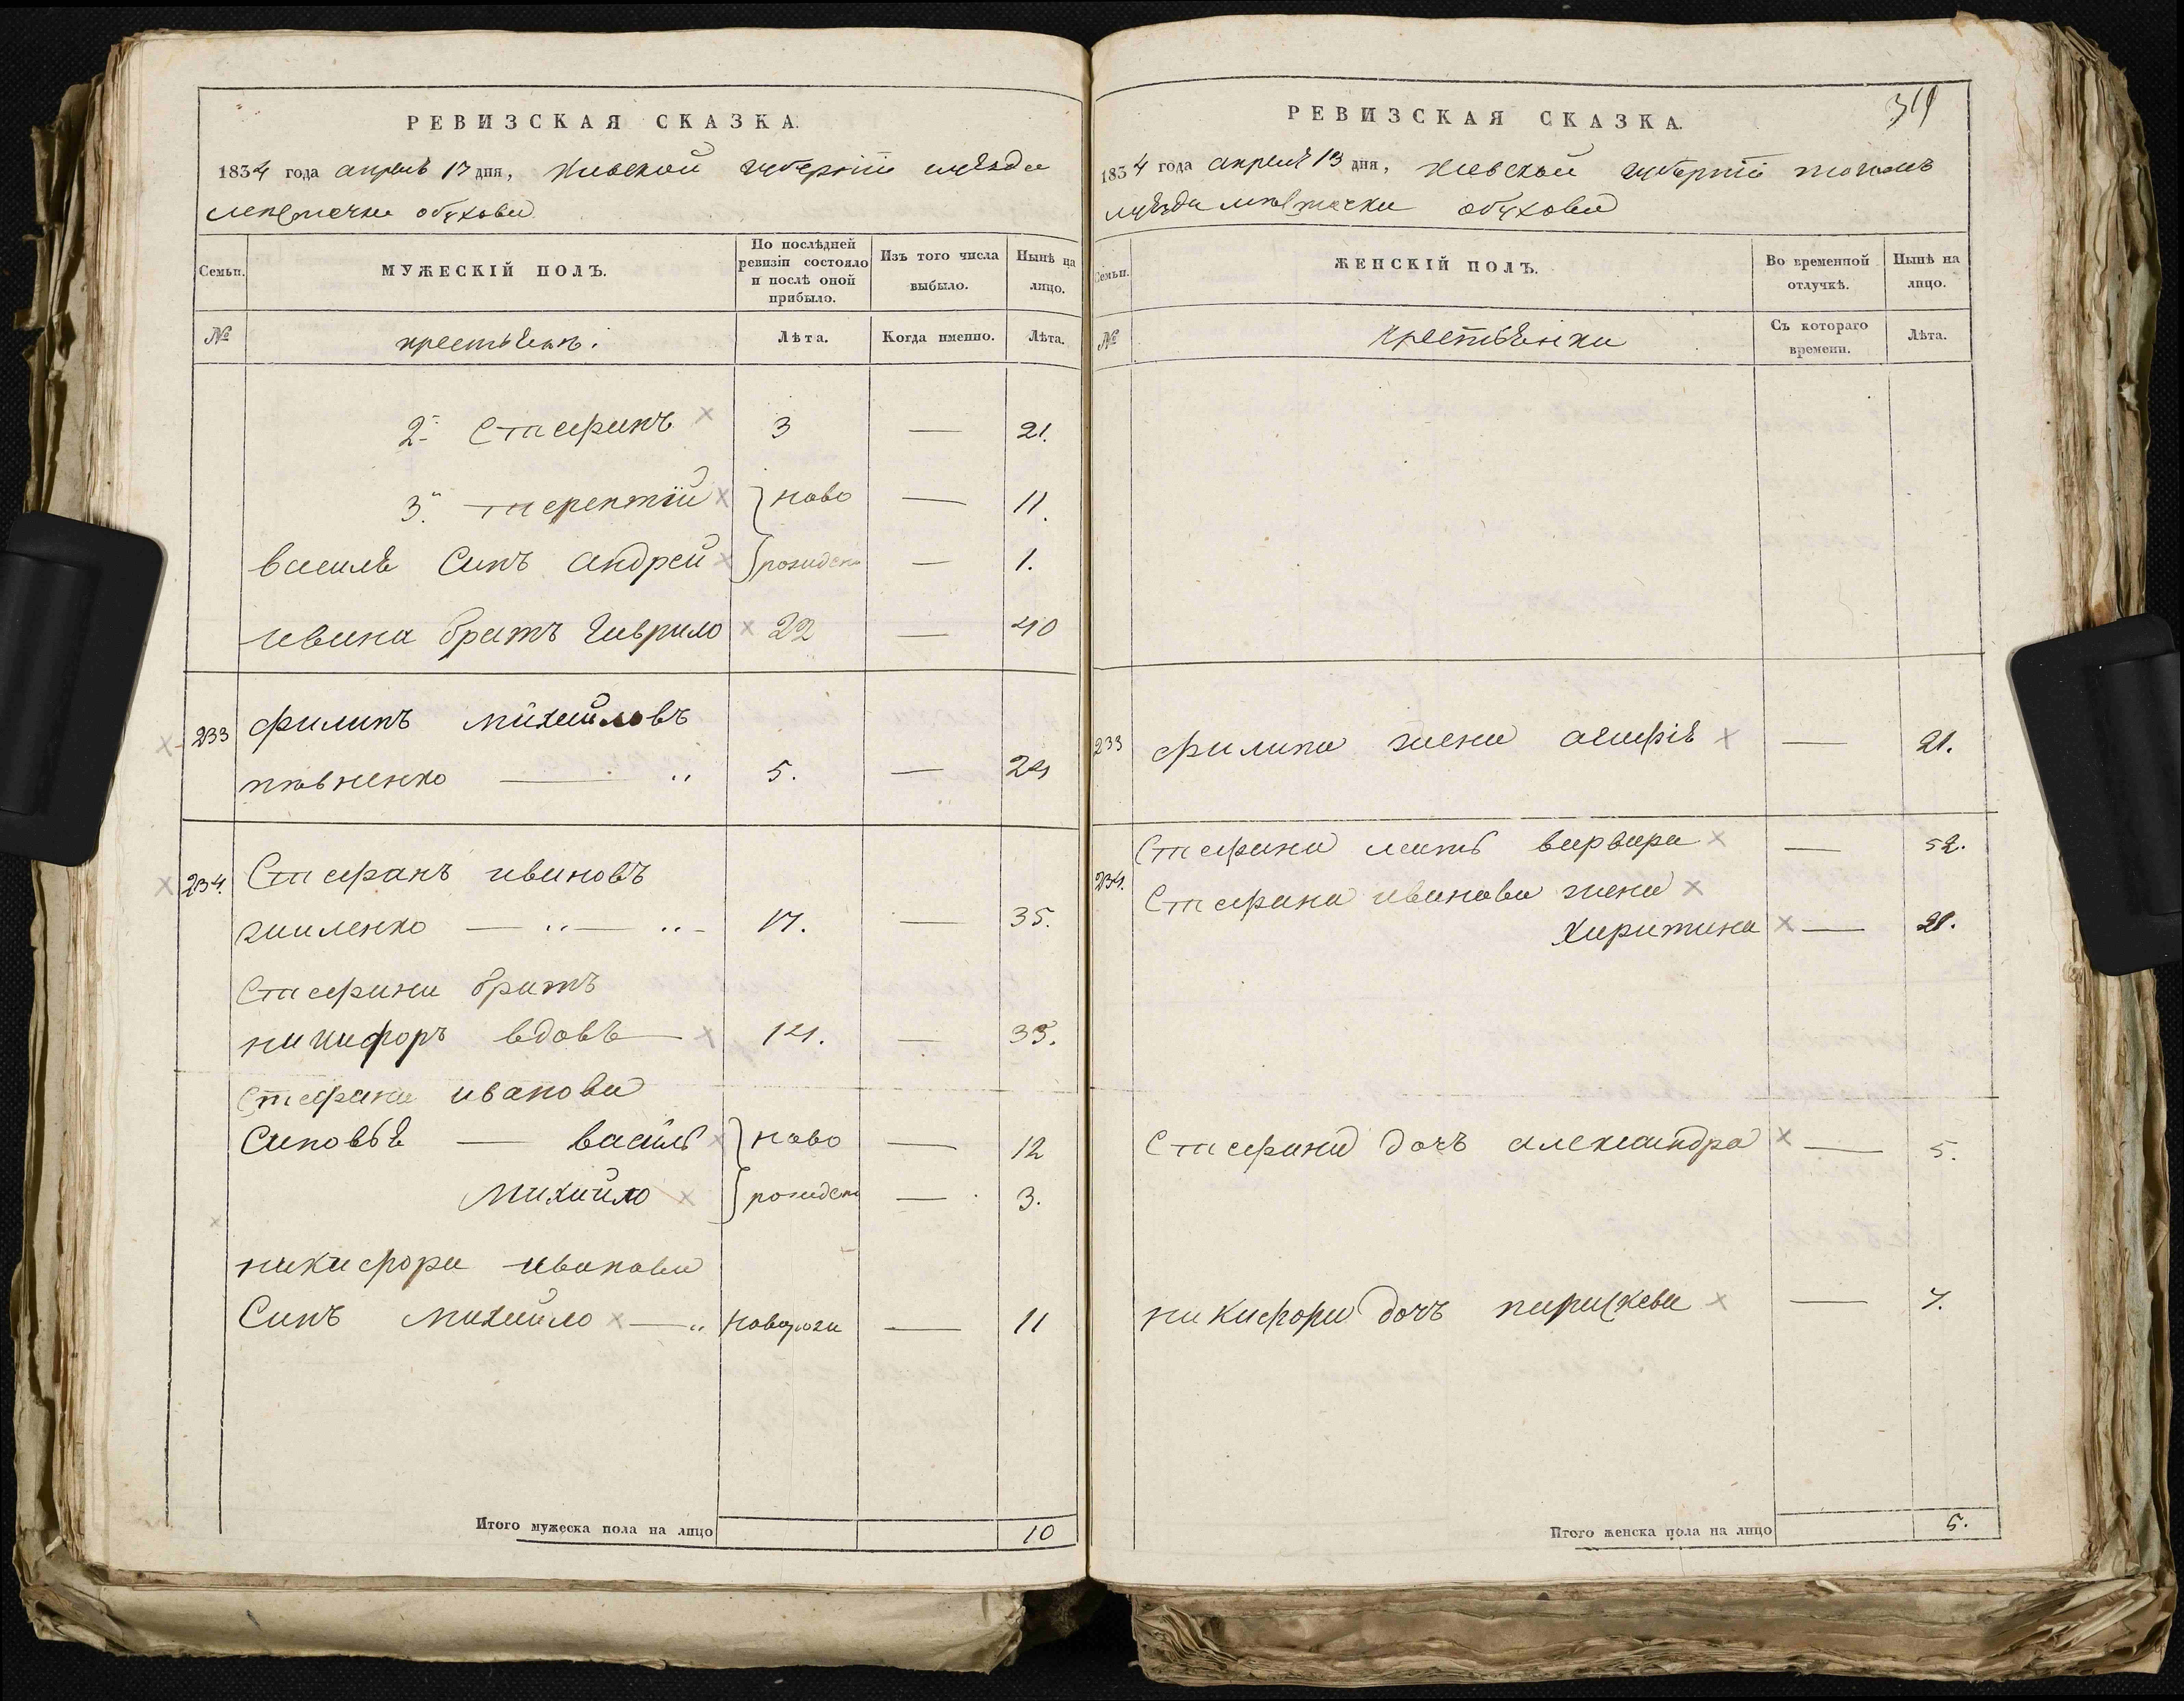 РЕВИЗСКАЯ СКАЗКА.
1834 года апреля 13 дня, Киевской губернїи уѣзда
местечка обухова
Семьи.
МУЖЕСКІЙ ПОЛЪ.
По послѣдней ревизіи состояло и послѣ оной прибыло.
Изъ того числа выбыло.
Нынѣ на лицо.
№
крестьяне.
Лѣта.
Когда именно.
Лѣта.
2й Стефанъ 3 — 21.
3й терентїй ново — 11.
василя Синъ андрей рожиден — 1.
ивана братъ гаврило 22 — 40
233 филипъ михайловъ
5. — 24
234. Стефанъ ивановъ
17. — 35.
Стефана братъ
никифоръ вдовъ 14. — 33.
Стефана иванова
Синовья — василь ново — 12
михайло рожиден — 3.
никифора иванова
Синъ михайло — новорож — 11
Итого мужеска пола на лицо 10
319
РЕВИЗСКАЯ СКАЗКА.
1834 года апреля 13 дня, Киевской губернїи тогожъ
уѣзда местечка обухова
Семьи.
ЖЕНСКІЙ ПОЛЪ.
Во временной отлучкѣ.
Нынѣ на лицо.
№
крестьянки
Съ котораго времени.
Лѣта.
233 филипа жена агафія — 21.
234. Стефана мать варвара — 52.
Стефана иванова жена
харитина — 28.
Стефана дочъ александра — 5.
никифора дочъ параскева — 7.
Итого женска пола на лицо 5.